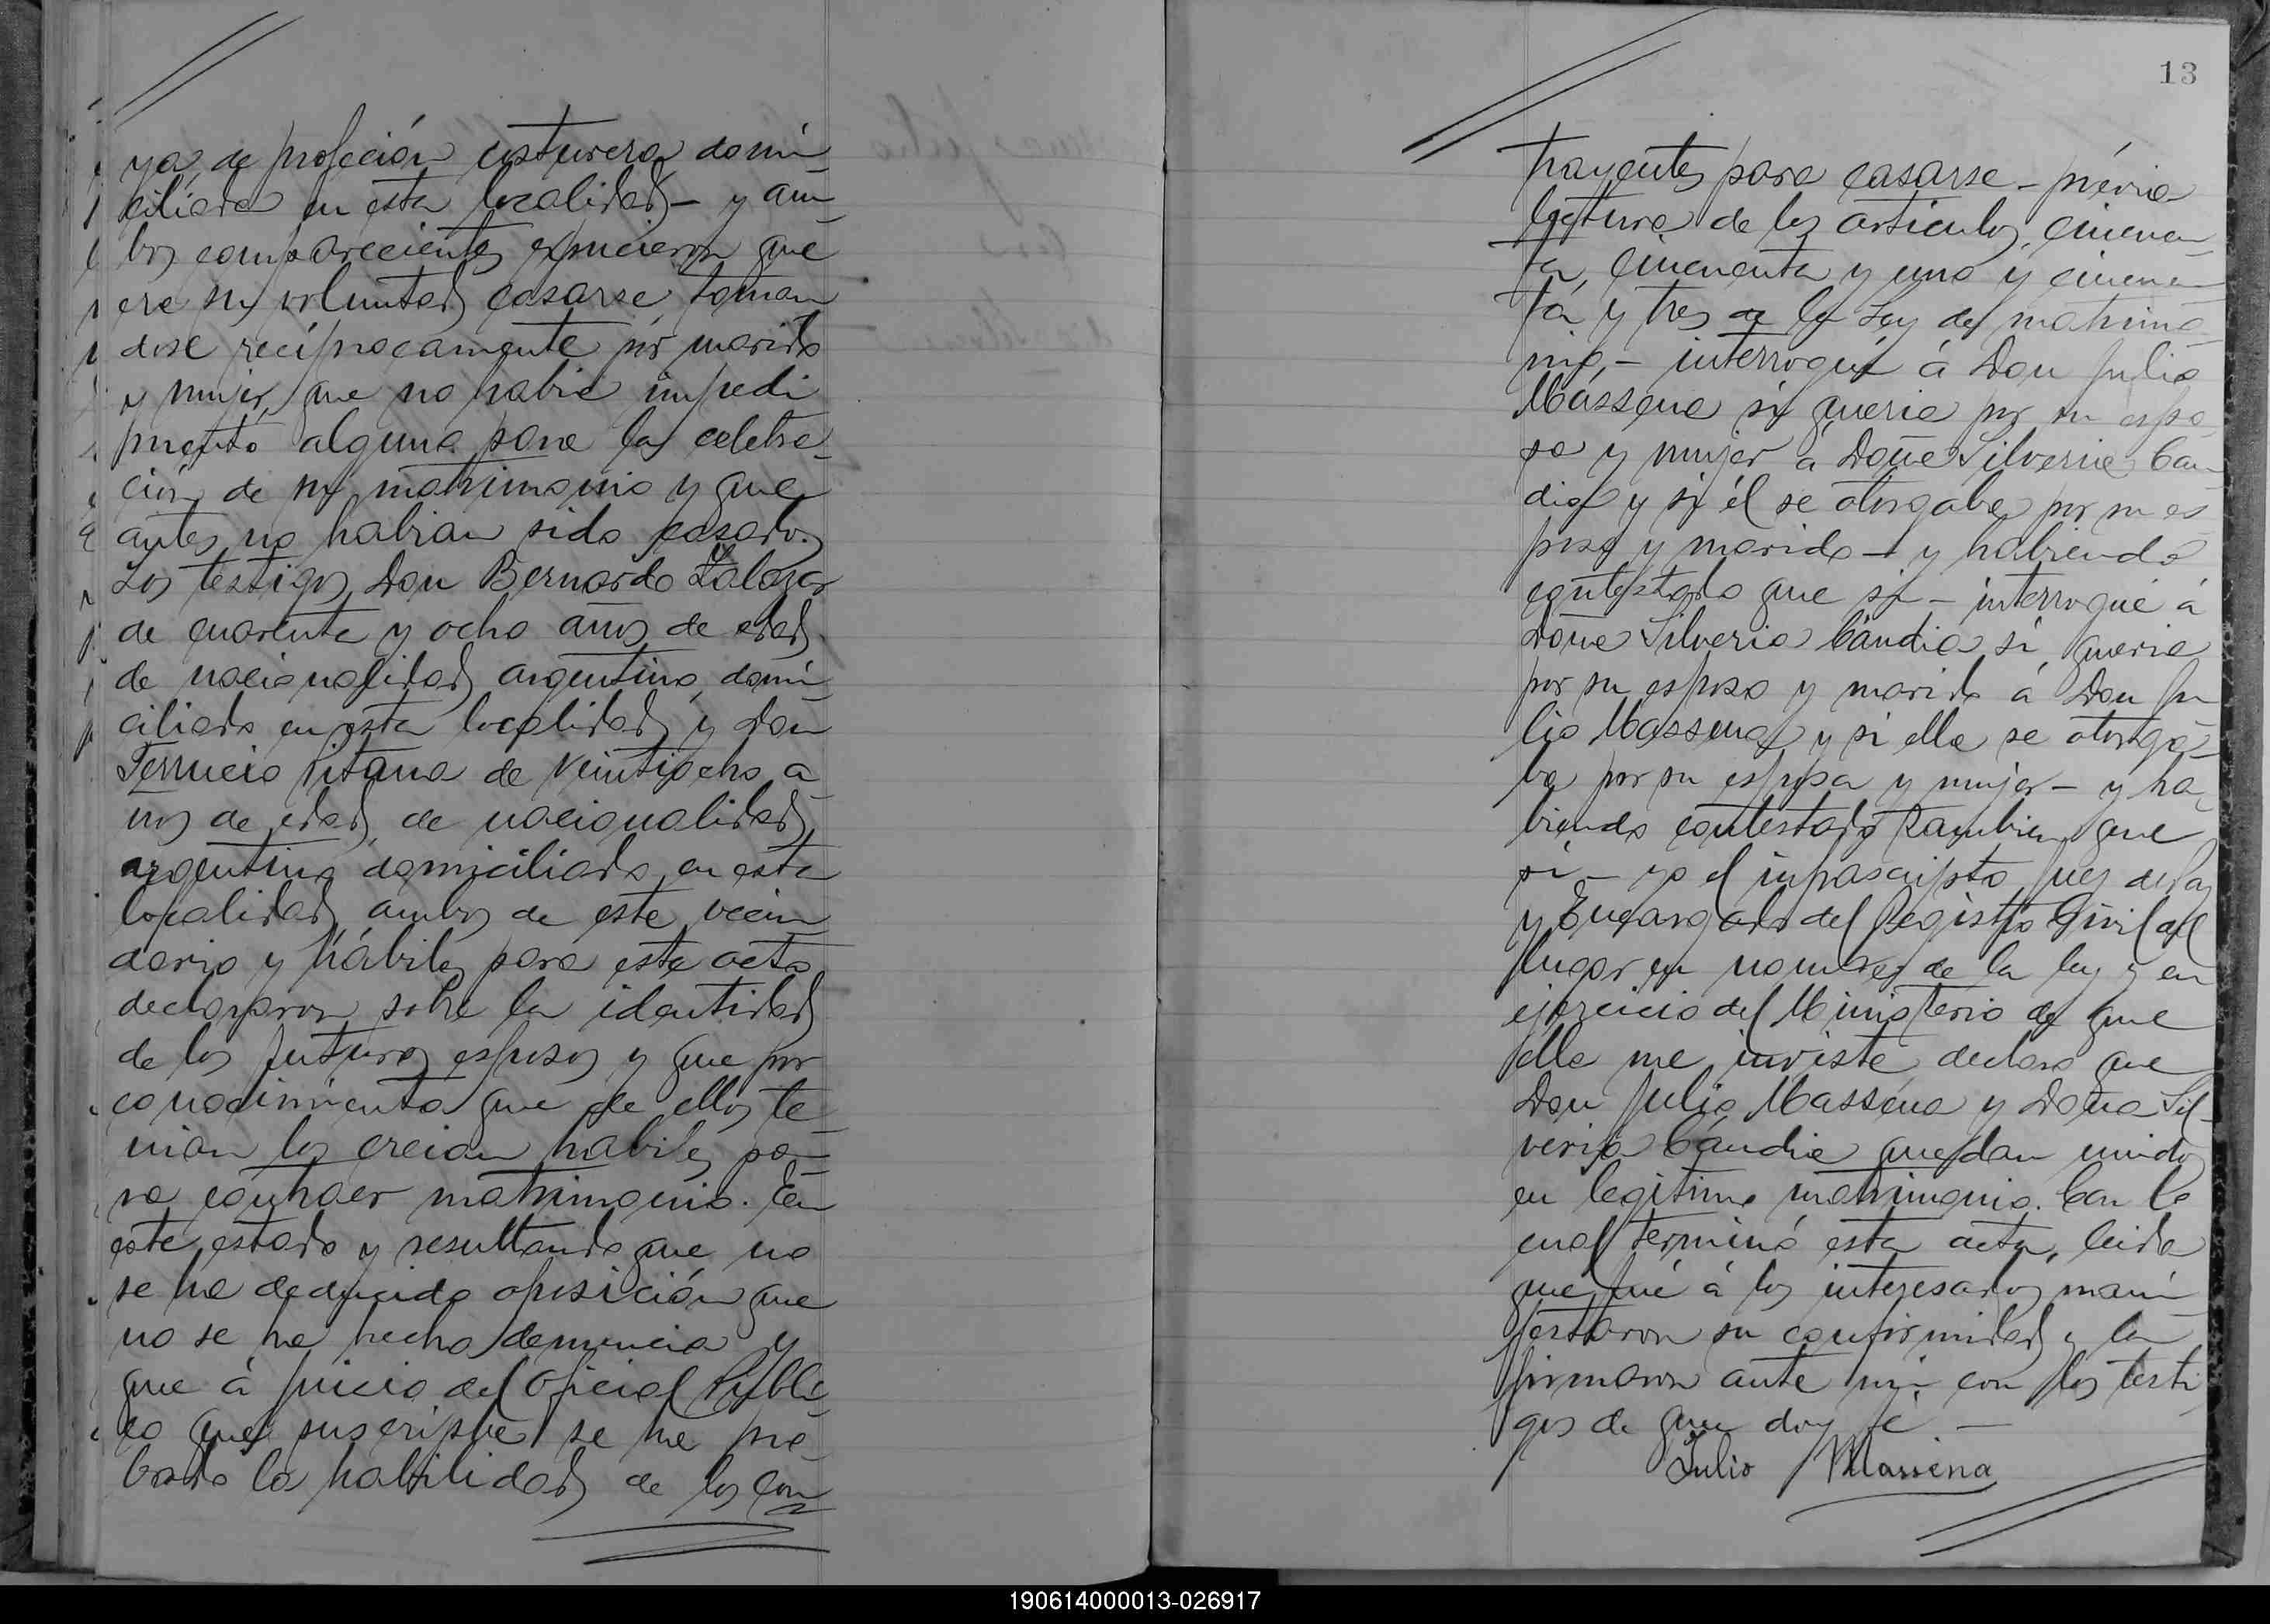 ya, de profeción costurera domi-
ciliada en esta localidad – y am-
bos comparecientes espucieron que
era su voluntad casarse, toman
dose recíprocamente por marido
y mujer, que no habia impedi
mento alguno para la celebra-
ción de su matrimonio y que
antes no habian sido casados.
Los testigos, Don Bernardo Salazar
de cuarenta y ocho años de edad
de nacionalidad argentino, domi-
ciliado en esta localidad y Don
Terrucio Pitana de veintiocho a-
ños de edad, de nacionalidad
argentino domiciliado en esta
localidad, ambos de este vecin
dario y hábiles para este acto
declararon sobre la identidad
de los futuros esposos y que por
conocimiento que de ellos te-
nian los creian habiles pa-
ra contraer matrimonio. En
este estado y resultando que no
se ha deducido oposición que
no se ha hecho denuncia y
que á juicio del Oficial Públi-
co que suscripbe se ha pro-
bado la habilidad de los con
13
trayentes para casarse – prévia
lectura de los articulos, cincuen-
ta, cincuenta y uno y cincuen-
ta y tres de la Ley de matrimo-
nio, – interrogué á Don Julio
Mássena si queria por su espo-
sa y mujer á Doña Silveria Can-
dia y si él se otorgaba por su es-
poso y marido – y habiendo
contestado que si – interrogué á
Doña Silveria Cándia si queria
por su esposo y marido á Don Ju
lio Massena y si ella se otorga-
ba por su esposa y mujer – y ha-
biendo contestado tambien que
si – yo el infrascripto Juez de Paz
y Encargado del Registro Civil del
lugar en nombre de la ley y en
ejercicio del Ministerio de que
ella me inviste, declaro que
Don Julio Masséna y Doña Sil-
veria Cándia quedan unidos
en legítimo matrimonio. Con lo
cual terminó esta acta, leida
que fué á los interesados mani-
festaron su conformidad y la
firmaron ante mi con los testi
gos de que doy fé. –
Julio Massena
190614000013-026917